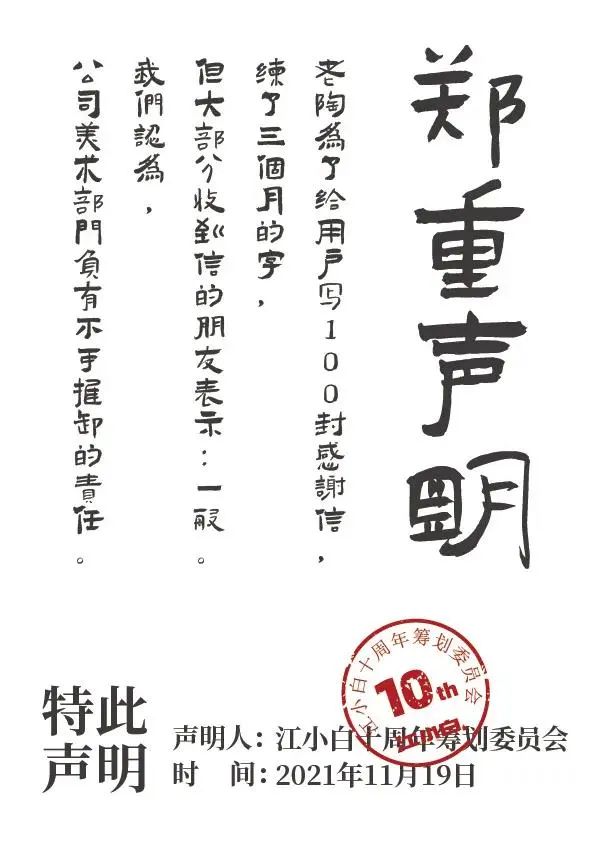 郑重声明
老陶為了给用户写100封感謝信，
練了三個月的字，
但大部分收到信的朋友表示：一般。
我們認為，
公司美术部門負有不可推卸的責任。
江小白十周年筹划委员会
10th
江小白
特此
声明
声明人：江小白十周年筹划委员会
时　间：2021年11月19日